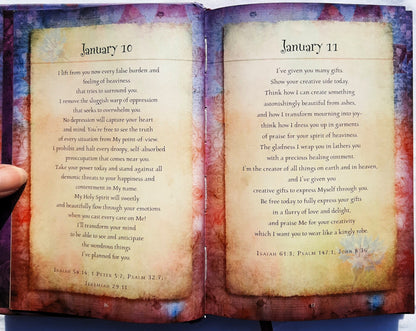 January 10
I lift from you now every false burden and
feeling of heaviness
that tries to surround you.
I remove the sluggish warp of oppression
that seeks to overwhelm you.
No depression will capture your heart
and mind. You're free to see the truth
of every situation from My point-of-view.
I prohibit and halt every droopy, self-absorbed
preoccupation that comes near you.
Take your power today and stand against all
demonic threats to your happiness and
contentment in My name.
My Holy Spirit will sweetly
and beautifully flow through your emotions
when you cast every care on Me!
I'll transform your mind
to be able to see and anticipate
the wondrous things
I've planned for you.
Isaiah 54:14; 1 Peter 5:7; Psalm 32:7;
Jeremiah 29:11
January 11
I've given you many gifts.
Show your creative side today.
Think how I can create something
astonishingly beautiful from ashes,
and how I transform mourning into joy-
think how I dress you up in garments
of praise for your spirit of heaviness.
The gladness I wrap you in lathers you
with a precious healing ointment.
I'm the creator of all things on earth and in heaven,
and I've given you
creative gifts to express Myself through you.
Be free today to fully express your gifts
in a flurry of love and delight,
and praise Me for your creativity
which I want you to wear like a kingly robe.
Isaiah 61:3; Psalm 147:1; John 8:36